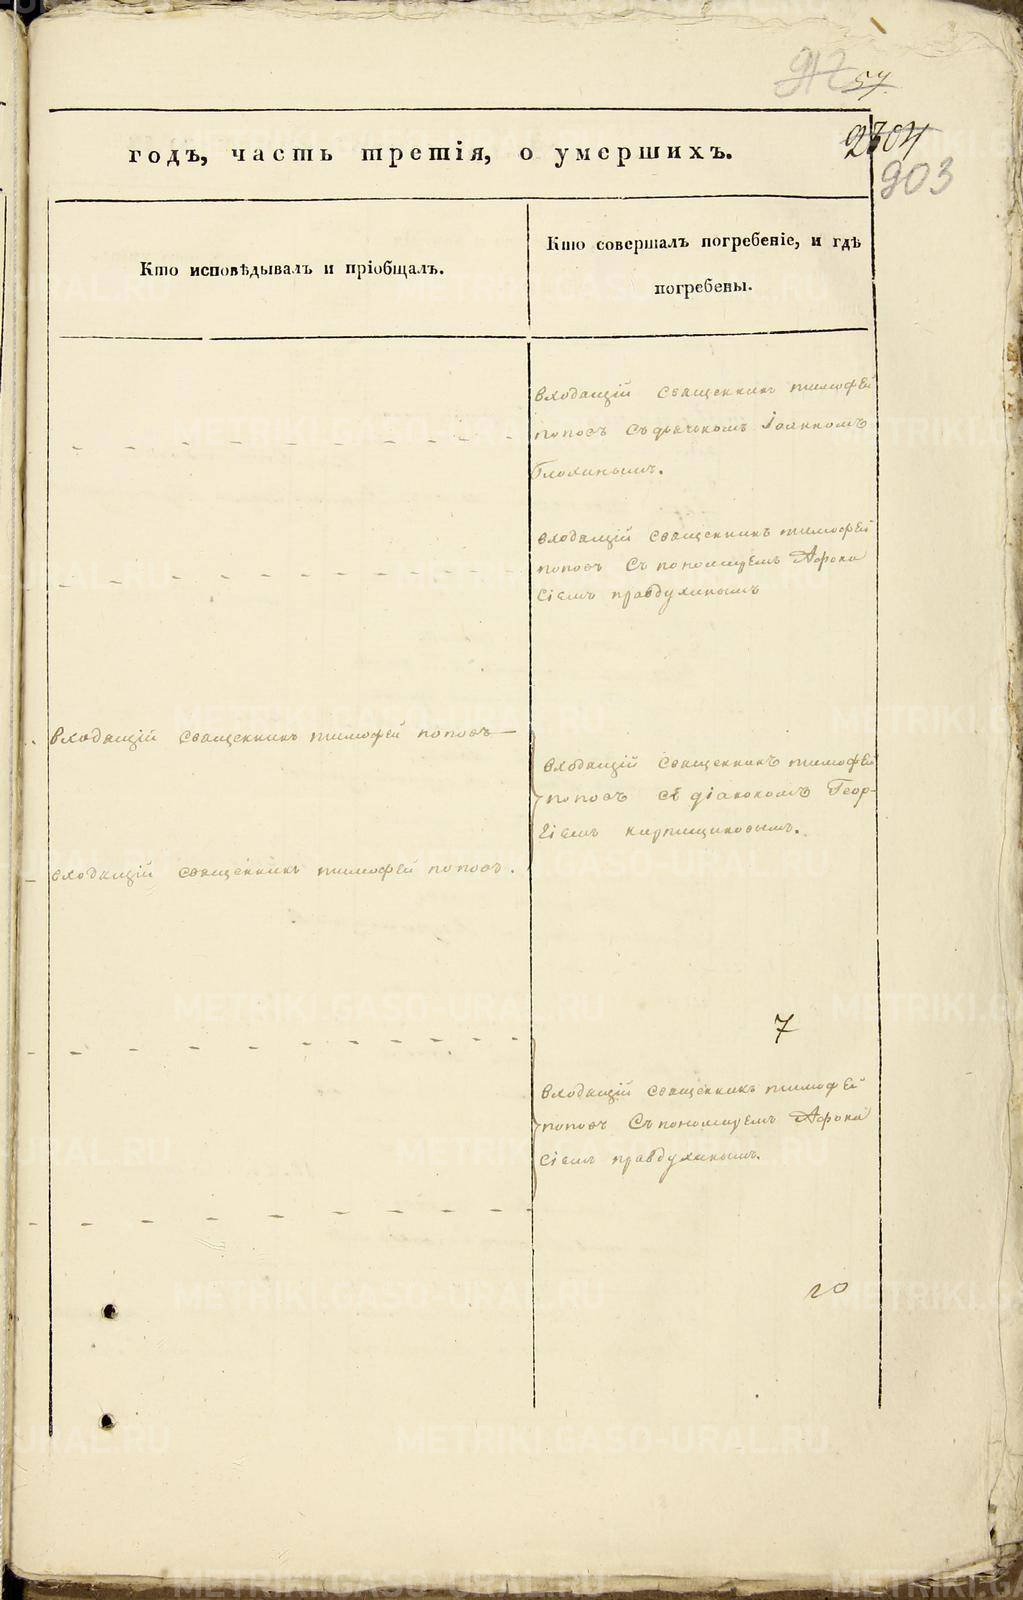 917
57.
2304
903
годъ, часть третія, о умершихъ.
Кто исповѣдывалъ и пріобщалъ.
Кто совершалъ погребеніе, и гдѣ
погребены.
входащій священникъ тимофей
поповъ съ дьячькомъ Іоанномъ
входащій священникъ тимофей
поповъ съ пономаремъ Афона
сіемъ правдухинымъ
входащій священникъ тимофей поповъ
входащій священникъ тимофей
поповъ съ діакономъ Геор-
гіемъ кирпищиковымъ.
входащій священникъ тимофей поповъ.
7
входащій священникъ тимофей
поповъ съ пономаремъ Афона
сіемъ правдухинымъ.
METRIKI.GASO-URAL.RU